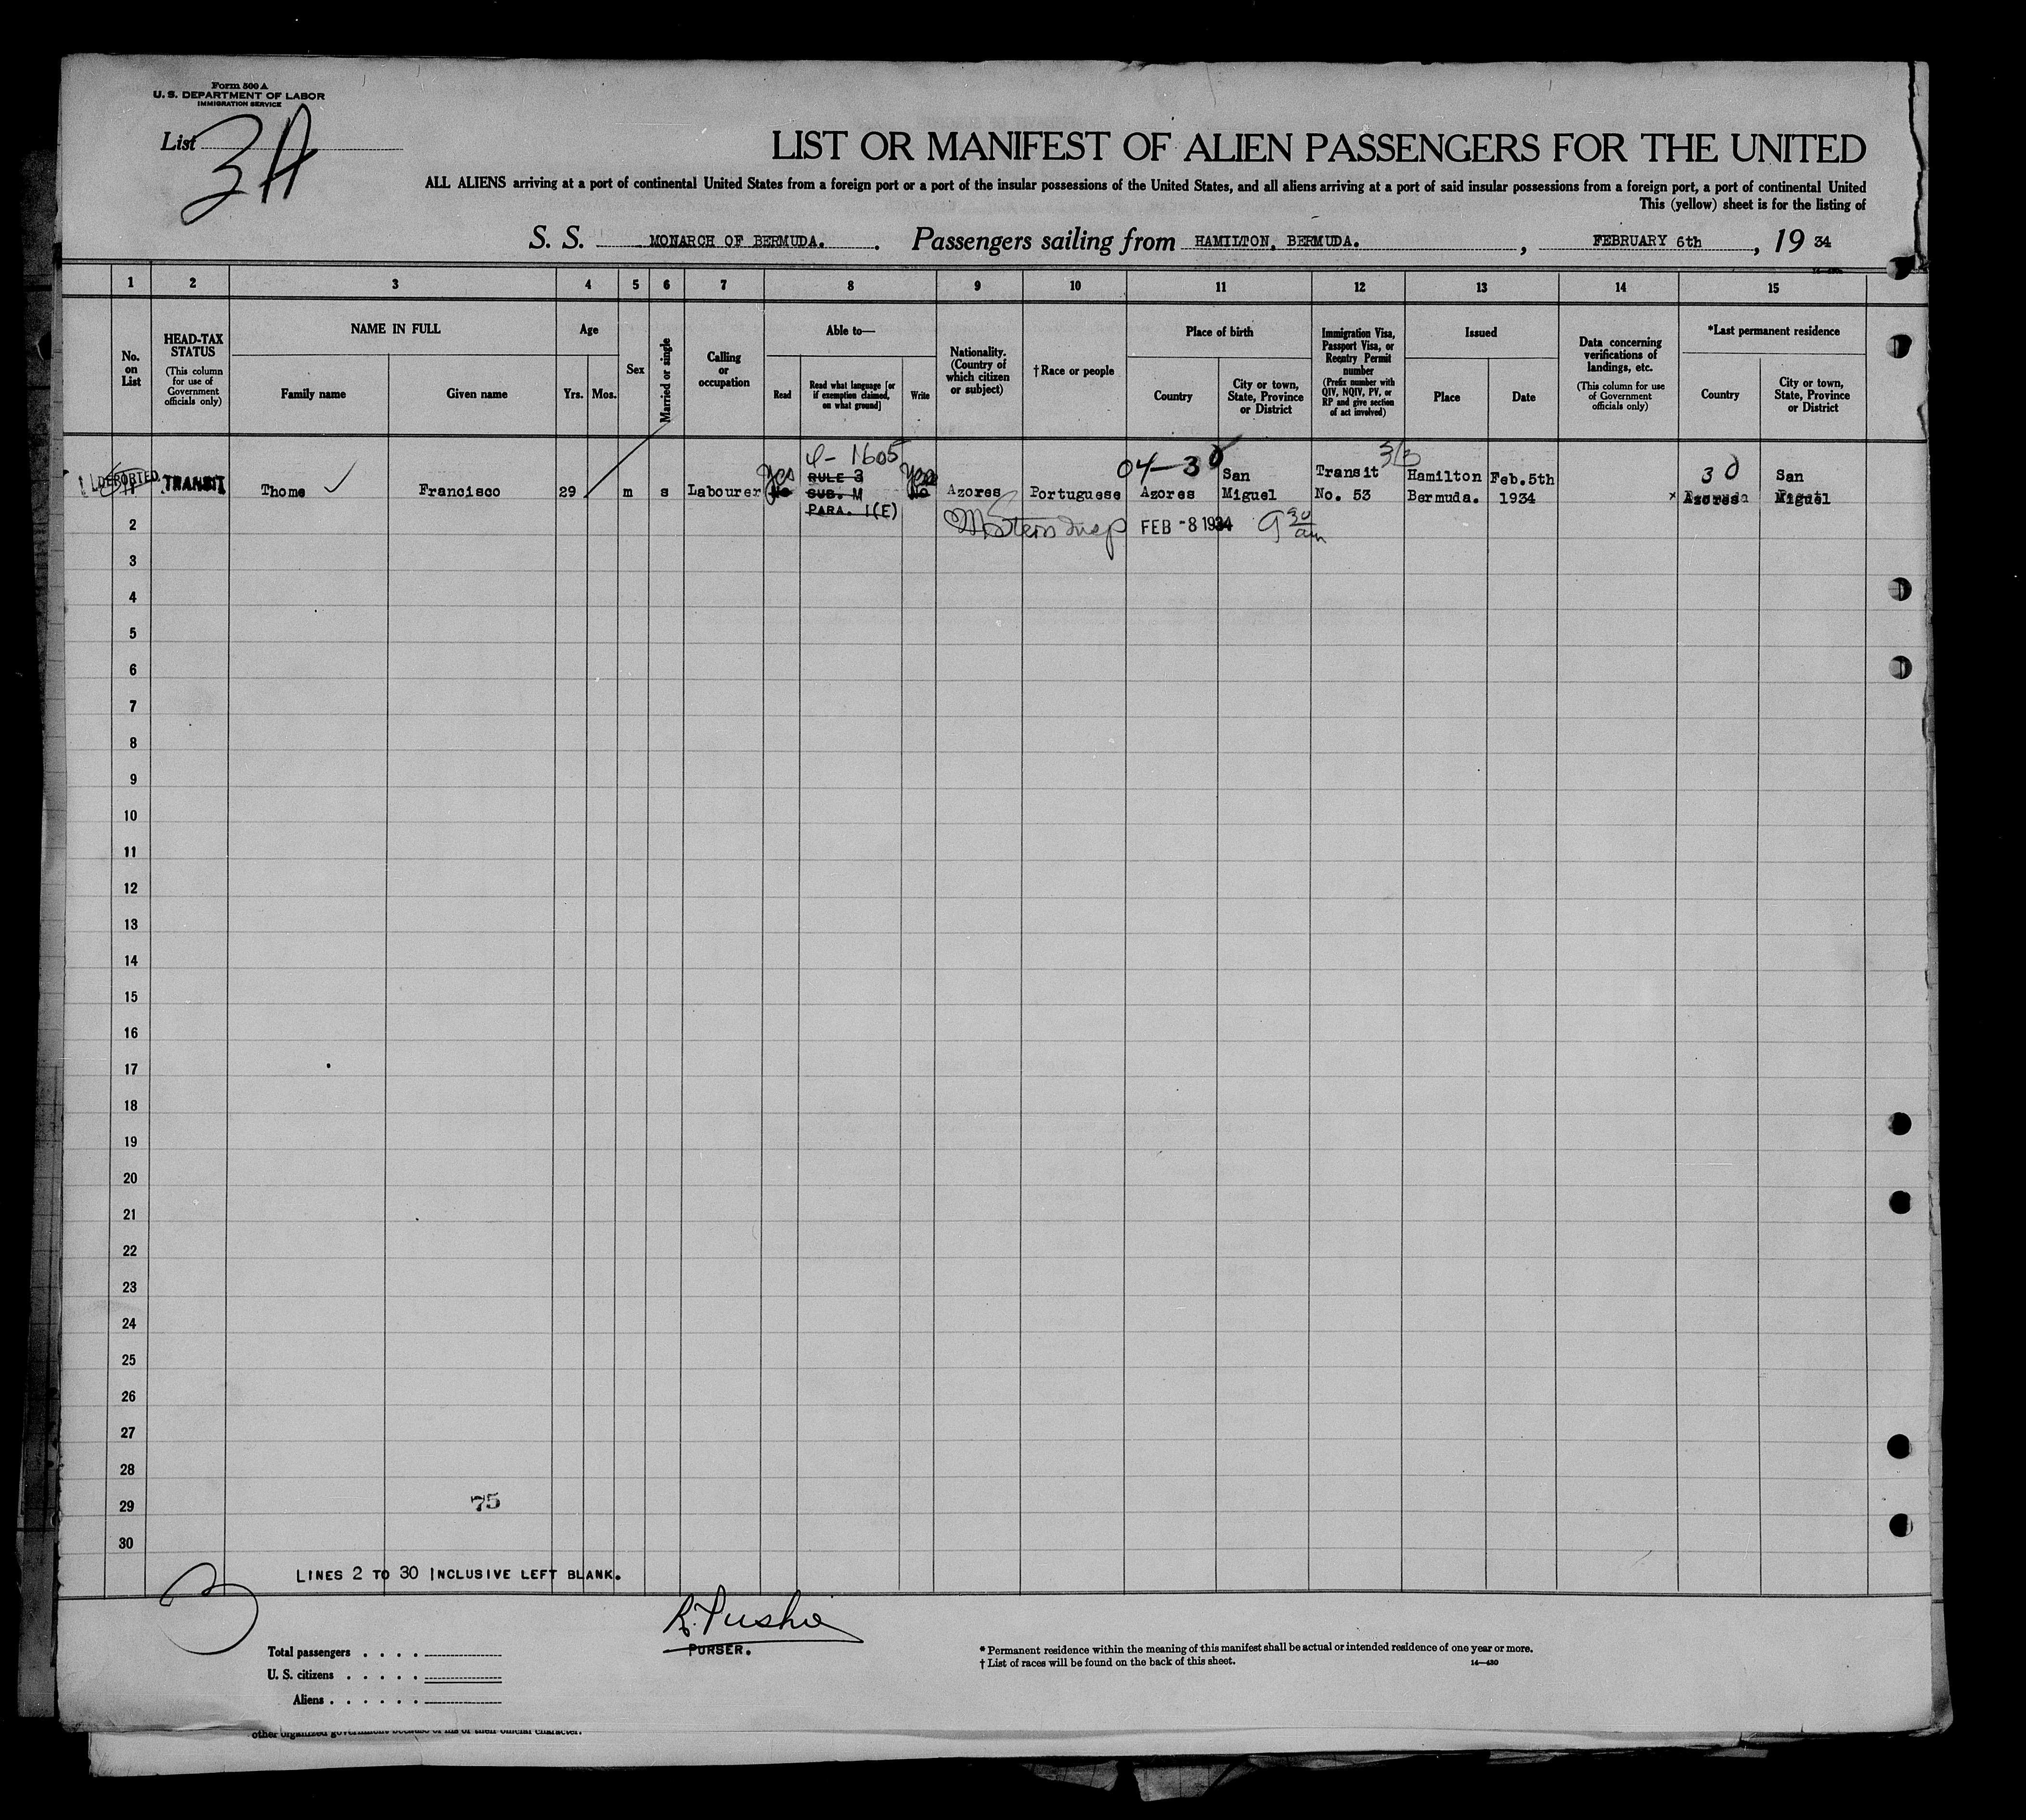 Form 500 A
U. S. DEPARTMENT OF LABOR
IMMIGRATION SERVICE
List 3A
LIST OR MANIFEST OF ALIEN PASSENGERS FOR THE UNITED
ALL ALIENS arriving at a port of continental United States from a foreign port or a port of the insular possessions of the United States, and all aliens arriving at a port of said insular possessions from a foreign port, a port of continental United
This (yellow) sheet is for the listing of
S. S. MONARCH OF BERMUDA. . Passengers sailing from HAMILTON, BERMUDA. , FEBRUARY 6th , 19 34
1 2 3 4 5 6 7 8 9 10 11 12 13 14 15
No. on List
HEAD-TAX STATUS
(This column for use of Government officials only)
NAME IN FULL
Family name
Given name
Age
Yrs.
Mos.
Sex
Married or single
Calling or occupation
Able to—
Read
Read what language [or if exemption claimed, on what ground]
Write
Nationality. (Country of which citizen or subject)
†Race or people
Place of birth
Country
City or town, State, Province or District
Immigration Visa, Passport Visa, or Reentry Permit number
(Prefix number with QIV, NQIV, PV, or RP and give section of act involved)
Issued
Place
Date
Data concerning verifications of landings, etc.
(This column for use of Government officials only)
*Last permanent residence
Country
City or town, State, Province or District
4- 1605
04-30
3/3
30
DEPORTED
TRANSIT
Thome
Francisco
29
m
s
Labourer
Yes
No
RULE 3
SUB. M
PARA. 1(E)
Yes
No
Azores
Portuguese
Azores
San
Miguel
Transit
No. 53
Hamilton
Bermuda.
Feb.5th
1934
x Azores
San
Miguel
FEB -8 1934
9 30 am
2
3
4
5
6
7
8
9
10
11
12
13
14
15
16
17
18
19
20
21
22
23
24
25
26
27
28
29
75
30
LINES 2 TO 30 INCLUSIVE LEFT BLANK.
R. Pushie
PURSER.
Total passengers . . . .
U. S. citizens . . . . .
Aliens . . . . . .
* Permanent residence within the meaning of this manifest shall be actual or intended residence of one year or more.
† List of races will be found on the back of this sheet.
14—430
other organized government because of his or their official character.